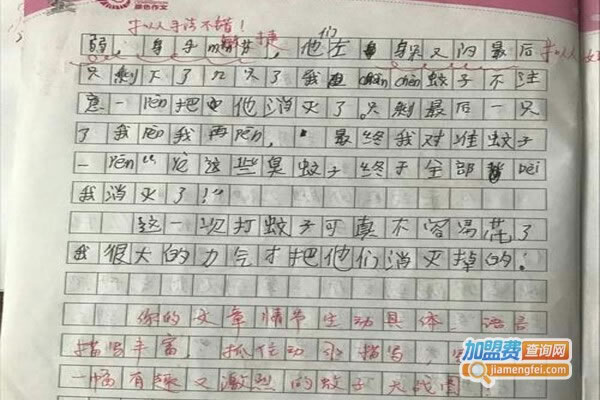 拟人手法不错！
弱，身手min 敏捷，他们在躲又闪最后
只剩下了几只了我chèn chèn蚊子不注
意一rēn把他消灭了。只剩最后一只
了我rēn我再rēn，最终我对准蚊子
一rēn“这些臭蚊子终于全部bèi
我消灭了！”
这一次打蚊子可真不容易花了
我很大的力气才把他们消灭掉的！
你的文章情节生动具体，语言
描写丰富，抓住动词描写
一幅有趣又激烈的蚊子大战图！
加盟费查询网
jiamengfei.com